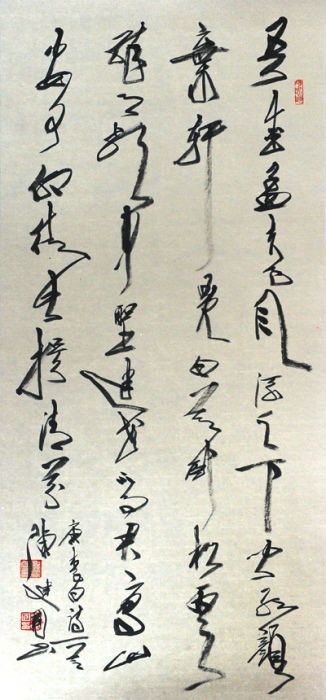 吾愛孟夫子風流天下聞紅顏
棄軒冕白首卧松雲
醉月頻中聖迷花事君高山
安可仰徒此揖清芬
李白詩一首
陳建